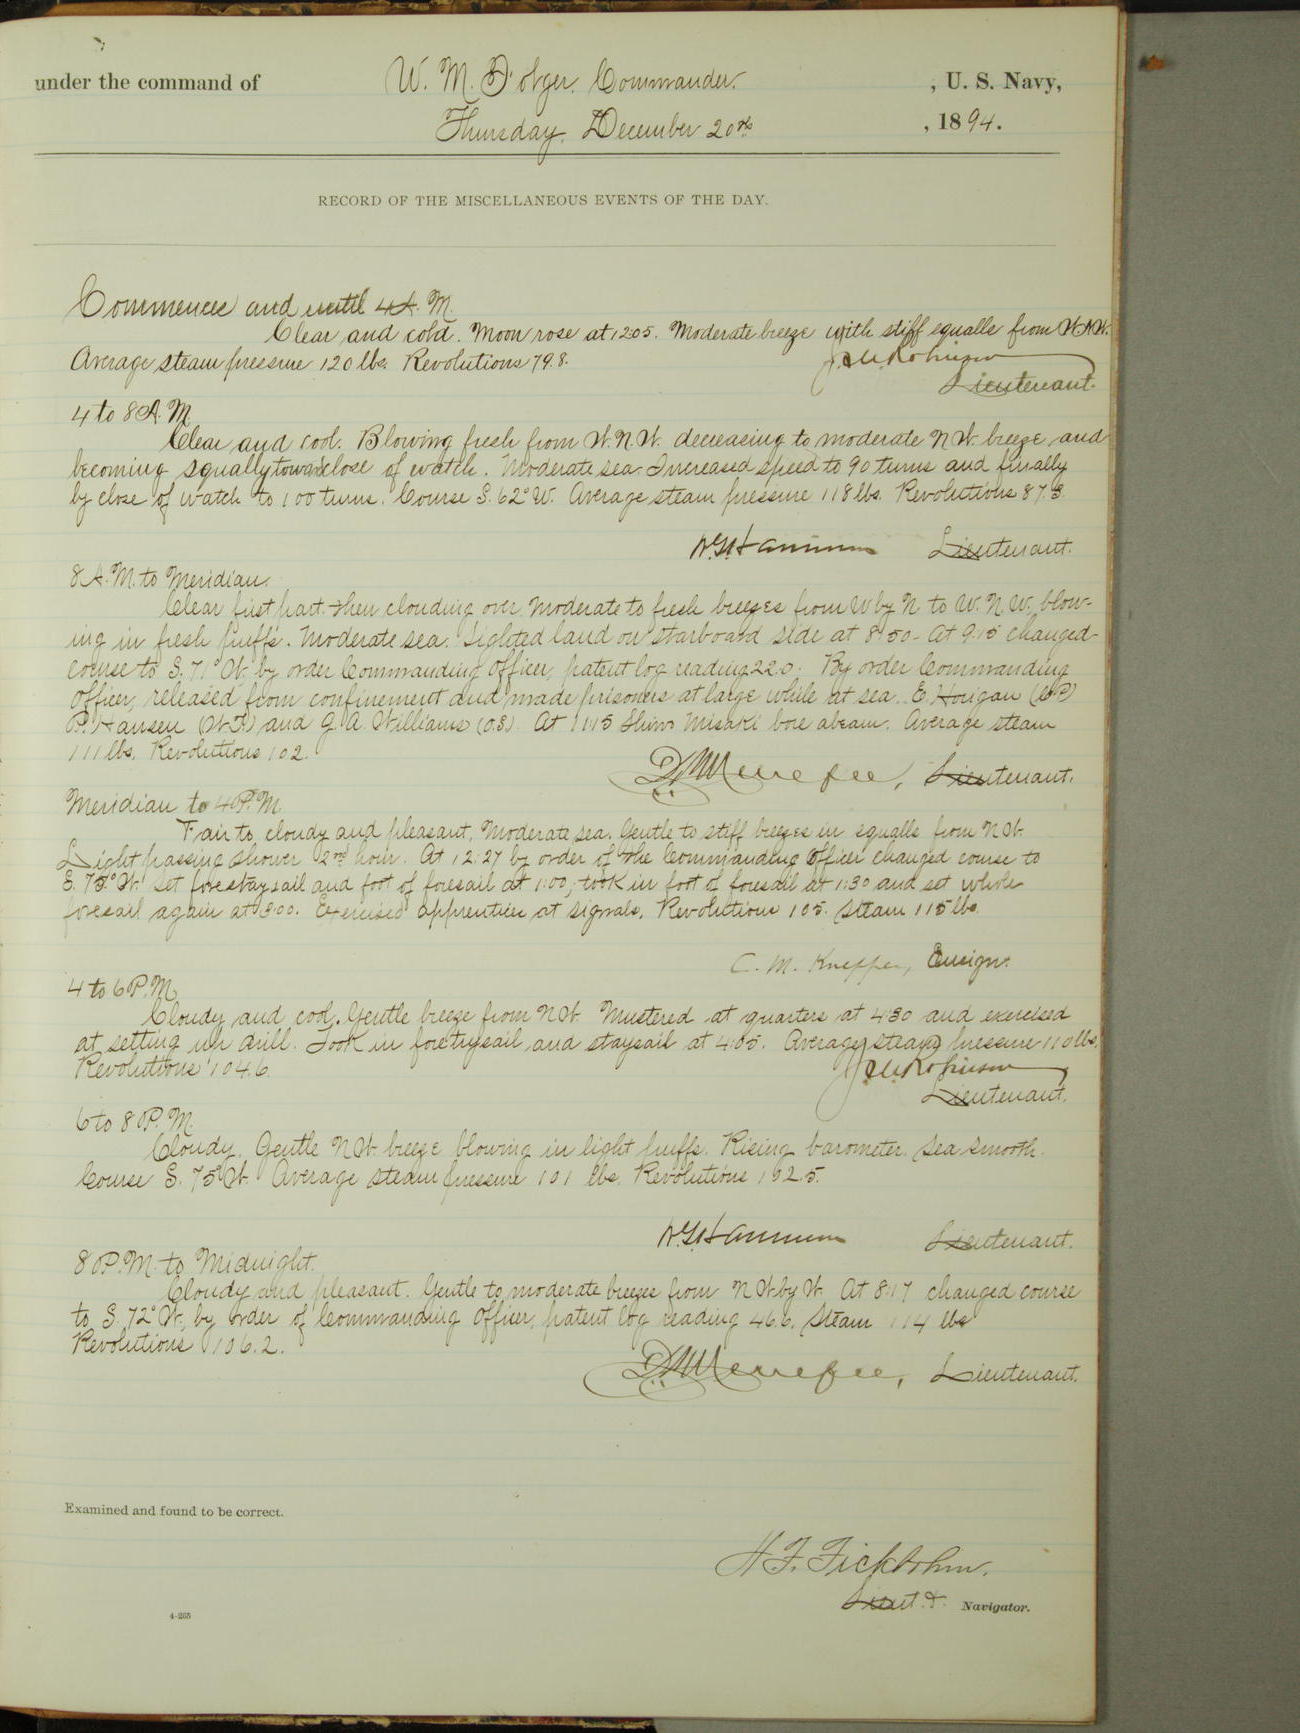 under the command of W. M. Folger, Commander. , U. S. Navy,
Thursday, December 20th , 1894.
RECORD OF THE MISCELLANEOUS EVENTS OF THE DAY.
Commences and until 4 A. M.
Clear and cold. Moon rose at 12:05. Moderate breeze with stiff squalls from W.N.W.
Average steam pressure 120 lbs. Revolutions 79.8.
Robinson
Lieutenant.
4 to 8 A. M.
Clear and cool. Blowing fresh from W.N.W. decreasing to moderate N.W. breeze and
becoming squally toward close of watch. Moderate sea. Increased speed to 90 turns and finally
by close of watch to 100 turns. Course S. 62° W. Average steam pressure 118 lbs. Revolutions 87.3.
W.G. Hannum Lieutenant.
8 A. M. to Meridian.
Clear first part then clouding over. Moderate to fresh breezes from W by N to W. N. W. blow-
ing in fresh puffs. Moderate sea. Sighted land on starboard side at 8:50- At 9:15 changed
course to S. 71° W. by order Commanding Officer, patent log reading 22.0. By order Commanding
Officer, released from confinement and made prisoners at large while at sea. E. Horigan
P. Hansen and G. A. Williams (O.S.). At 11:15 Shiwo Misaki bore abeam. Average steam
111 lbs. Revolutions 102.
D. Menefee, Lieutenant.
Meridian to 4 P. M.
Fair to cloudy and pleasant. Moderate sea. Gentle to stiff breezes in squalls from N.W.
Light passing shower 2nd hour. At 12:27 by order of the Commanding Officer changed course to
S. 75° W. Set forestaysail and foot of foresail at 1:00, took in foot of foresail at 1:30 and set whole
foresail again at 3:00. Exercised apprentices at signals. Revolutions 105. Steam 115 lbs.
C. M. Knepper, Ensign.
4 to 6 P. M.
Cloudy and cool. Gentle breeze from N.W. Mustered at quarters at 4:30 and exercised
at setting up drill. Took in foretrysail and staysail at 4:05. Average steam pressure 110 lbs.
Revolutions 104.6.
Robinson
Lieutenant.
6 to 8 P. M.
Cloudy. Gentle N.W. breeze blowing in light puffs. Rising barometer. Sea smooth.
Course S. 75° W. Average steam pressure 101 lbs. Revolutions 102.5.
W.G. Hannum Lieutenant.
8 P. M. to Midnight.
Cloudy and pleasant. Gentle to moderate breezes from N.W. by W. At 8:17 changed course
to S. 72° W. by order of Commanding Officer, patent log reading 46.6. Steam 114 lbs
Revolutions 106.2.
D. Menefee, Lieutenant.
Examined and found to be correct.
H. F. Fickbohm.
Lieut. Navigator.
4-265